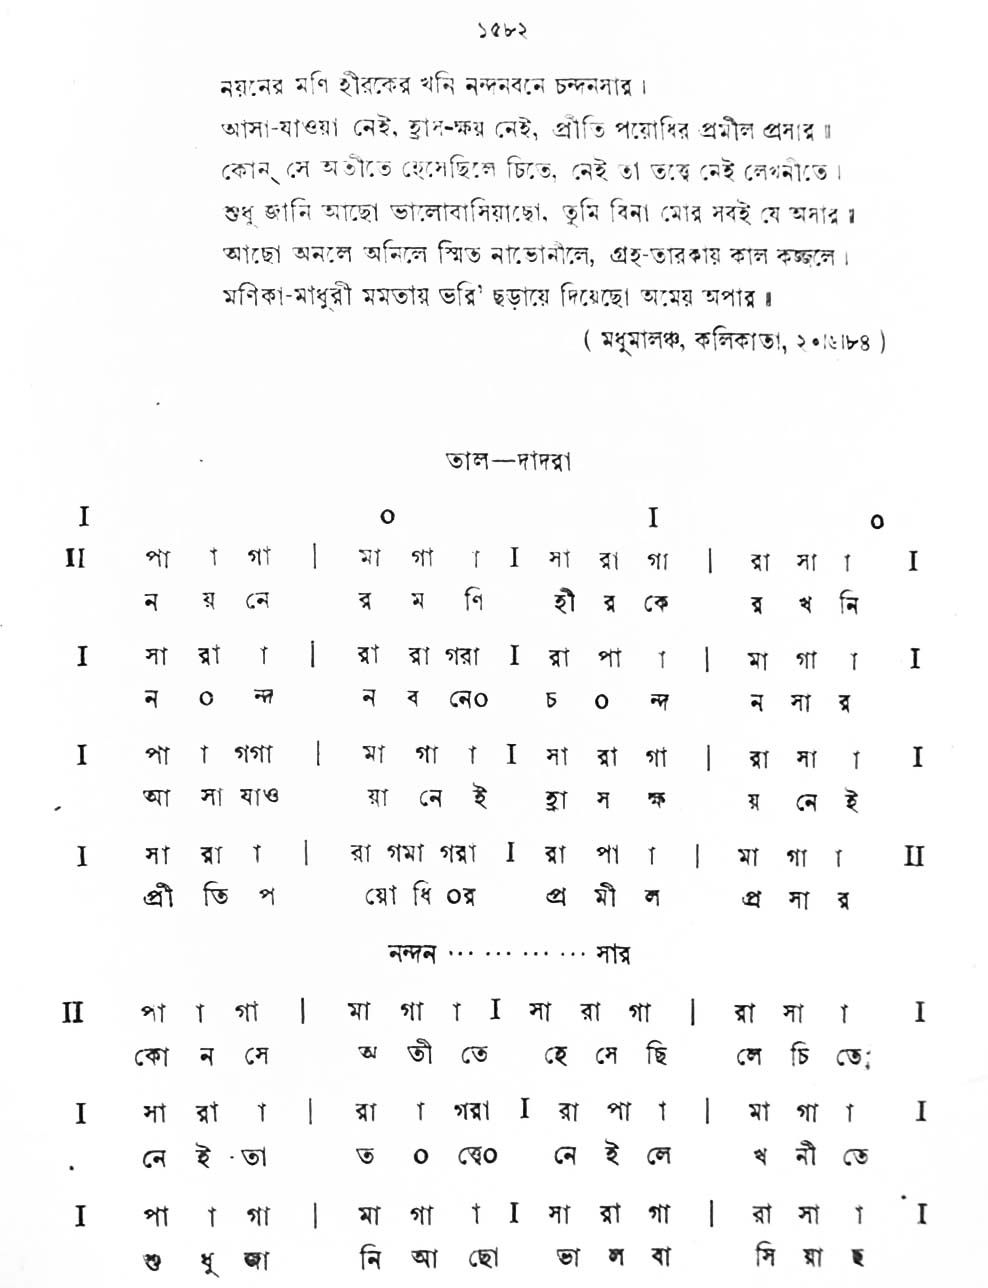 ১৫৮২
নয়নের মণি হীরকের খনি নন্দনবনে চন্দনসার।
আসা-যাওয়া নেই, হ্রাস-ক্ষয় নেই, প্রীতি পয়োধির প্রমীল প্রসার॥
কোন্ সে অতীতে হেসেছিলে চিতে, নেই তা তত্ত্বে নেই লেখনীতে।
শুধু জানি আছো ভালোবাসিয়াছো, তুমি বিনা মোর সবই যে অসার॥
আছো অনলে অনিলে স্মিত নাভোনীলে, গ্রহ-তারকায় কাল কজ্জলে।
মণিকা-মাধুরী মমতায় ভরি' ছড়ায়ে দিয়েছো অমেয় অপার॥
( মধুমালঞ্চ, কলিকাতা, ২০।৬।৮৪ )
তাল—দাদরা
I o I o
II পা া গা | মা গা া I সা রা গা | রা সা া I
ন য় নে র ম ণি হী র কে র খ নি
I সা রা া | রা রা গরা I রা পা া | মা গা া I
ন o ন্দ ন ব নেo চ o ন্দ ন সা র
I পা া গগা | মা গা া I সা রা গা | রা সা া I
আ সা যাও য়া নে ই হ্রা স ক্ষ য় নে ই
I সা রা া | রা গমা গরা I রা পা া | মা গা া II
প্রী তি প য়ো ধি oর প্র মী ল প্র সা র
নন্দন ⋯ ⋯ ⋯ ⋯ সার
II পা া গা | মা গা া I সা রা গা | রা সা া I
কো ন সে অ তী তে হে সে ছি লে চি তে;
I সা রা া | রা া গরা I রা পা া | মা গা া I
নে ই তা ত o ত্ত্বেo নে ই লে খ নী তে
I পা া গা | মা গা া I সা রা গা | রা সা া I
শু ধু জা নি আ ছো ভা ল বা সি য়া ছ